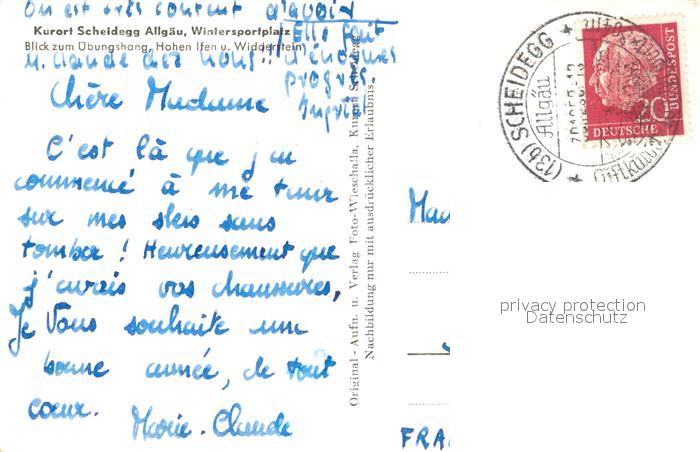 On est très content d'avoir
Kurort Scheidegg Allgäu, Wintersportplatz
Blick zum Übungshang, Hohen Ifen u. Widderstein
M. Claude chez nous!! Elle fait
d'énormes
progrès.
Chère Madame
C'est là que j'ai
commencé à me tenir
sur mes skis sans
tomber! Heureusement que
j'avais vos chaussures,
Je vous souhaite une
bonne année, de tout
cœur.
Marie-Claude
Original-Aufn. u. Verlag Foto-Wieschalla, Kurort Scheidegg
Nachbildung nur mit ausdrücklicher Erlaubnis
(13b) SCHEIDEGG
Allgäu
Luftkurort
20
DEUTSCHE
BUNDESPOST
privacy protection
Datenschutz
FRA